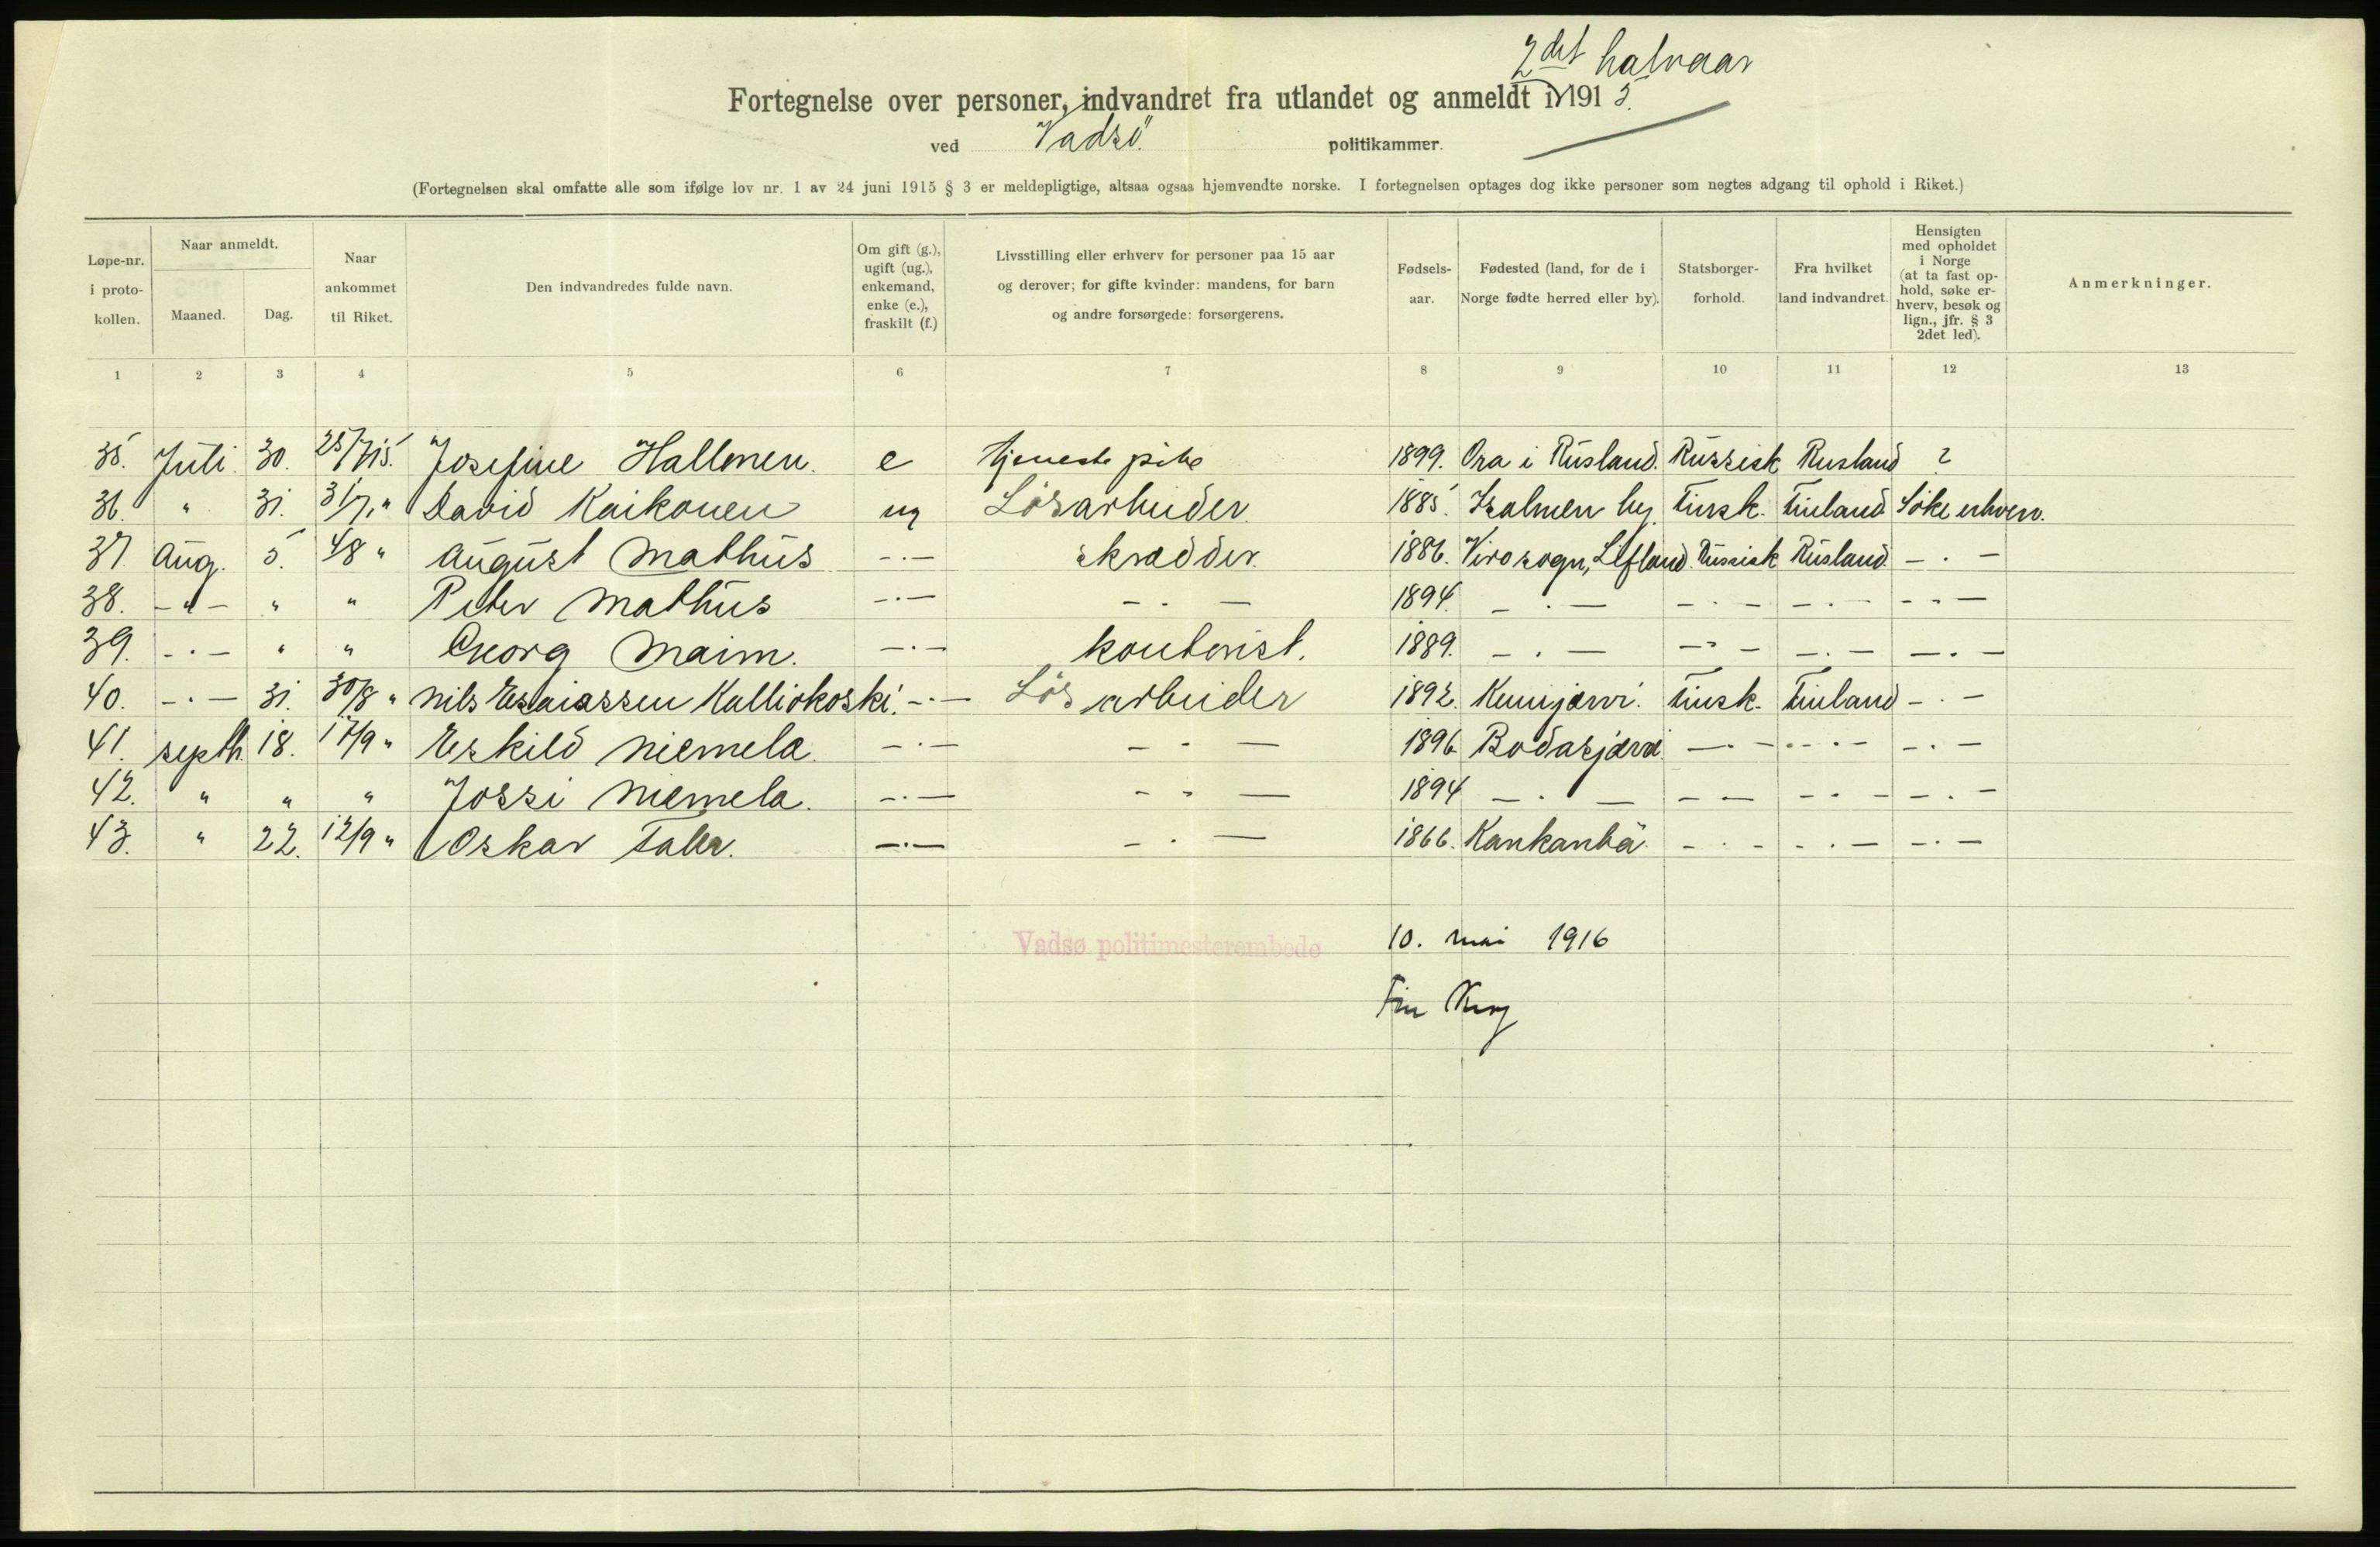 2det halvaar
Fortegnelse over personer, indvandret fra utlandet og anmeldt i 1915.
ved Vadsö. politikammer.
(Fortegnelsen skal omfatte alle som ifølge lov nr. 1 av 24 juni 1915 § 3 er meldepligtige, altsaa ogsaa hjemvendte norske. I fortegnelsen optages dog ikke personer som negtes adgang til ophold i Riket.)
Løpe-nr. i proto-kollen. Naar anmeldt. Maaned. Dag. Naar ankommet til Riket. Den indvandredes fulde navn. Om gift (g.), ugift (ug.), enkemand, enke (e.), fraskilt (f.) Livsstilling eller erhverv for personer paa 15 aar og derover; for gifte kvinder: mandens, for barn og andre forsørgede: forsørgerens. Fødsels-aar. Fødested (land, for de i Norge fødte herred eller by). Statsborger-forhold. Fra hvilket land indvandret. Hensigten med opholdet i Norge (at ta fast op-hold, søke er-hverv, besøk og lign., jfr. § 3 2det led). Anmerkninger.
1 2 3 4 5 6 7 8 9 10 11 12 13
35. Juli. 30. 25/7 15. Josefine Hallonen. e tjenestepike 1899. Ora i Rusland. Russisk Rusland ?
36. " 31. 31/7 " David Kaikonen ug Lösarbeider. 1885. by. Finsk. Finland Söke erhverv.
37. Aug. 5. 4/8 " August Mathus -.- skrædder. 1886. Viro sogn, Lifland. Russisk Rusland. - . -
38. -"- " " Peter Mathus -.- - . - 1894. - . - - . - - . - - . -
39. -.- " " Georg Maim. -.- kontorist. 1889. - . - - . - - . - - . -
40. -.- 31. 30/8 " Nils Esaiassen Kalliokoski. -.- Lösarbeider 1892. Kemijærvi. Finsk. Finland - . -
41. septb. 18. 17/9 " Eskild Niemela. -.- - . - 1896. Bodasjærvi. - . - - . - - . -
42. " " " Jossi Niemela. -.- - . - 1894 - . - - - - . - - . -
43. " 22. 12/9 " Oskar -.- - . - 1866. Kankanbä. - . - - . - - . -
Vadsø politimesterembede 10. mai 1916